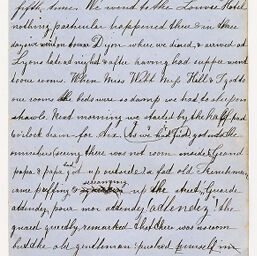 fifth time. We went to the Louvre Hotel
nothing particular happened there & in three
days we went on to Dijon where we dined, & arrived at
Lyons late at night & after having had supper went
to our rooms. When Miss Wild Miss Hill & I got to
our rooms the beds were so damp we had to sleep in
shawls. Next morning we started by the half past
o'clock train for Aix. As we had just got into the
omnibus (seeing there was not room inside & Grand
papa & papa had got up outside) a fat old Frenchman
came puffing & screaming up the street, Guarde
attendez, pour moi attendez! attendez" the
guard quietly remarked that there was no room
but the old gentleman pushed himself in